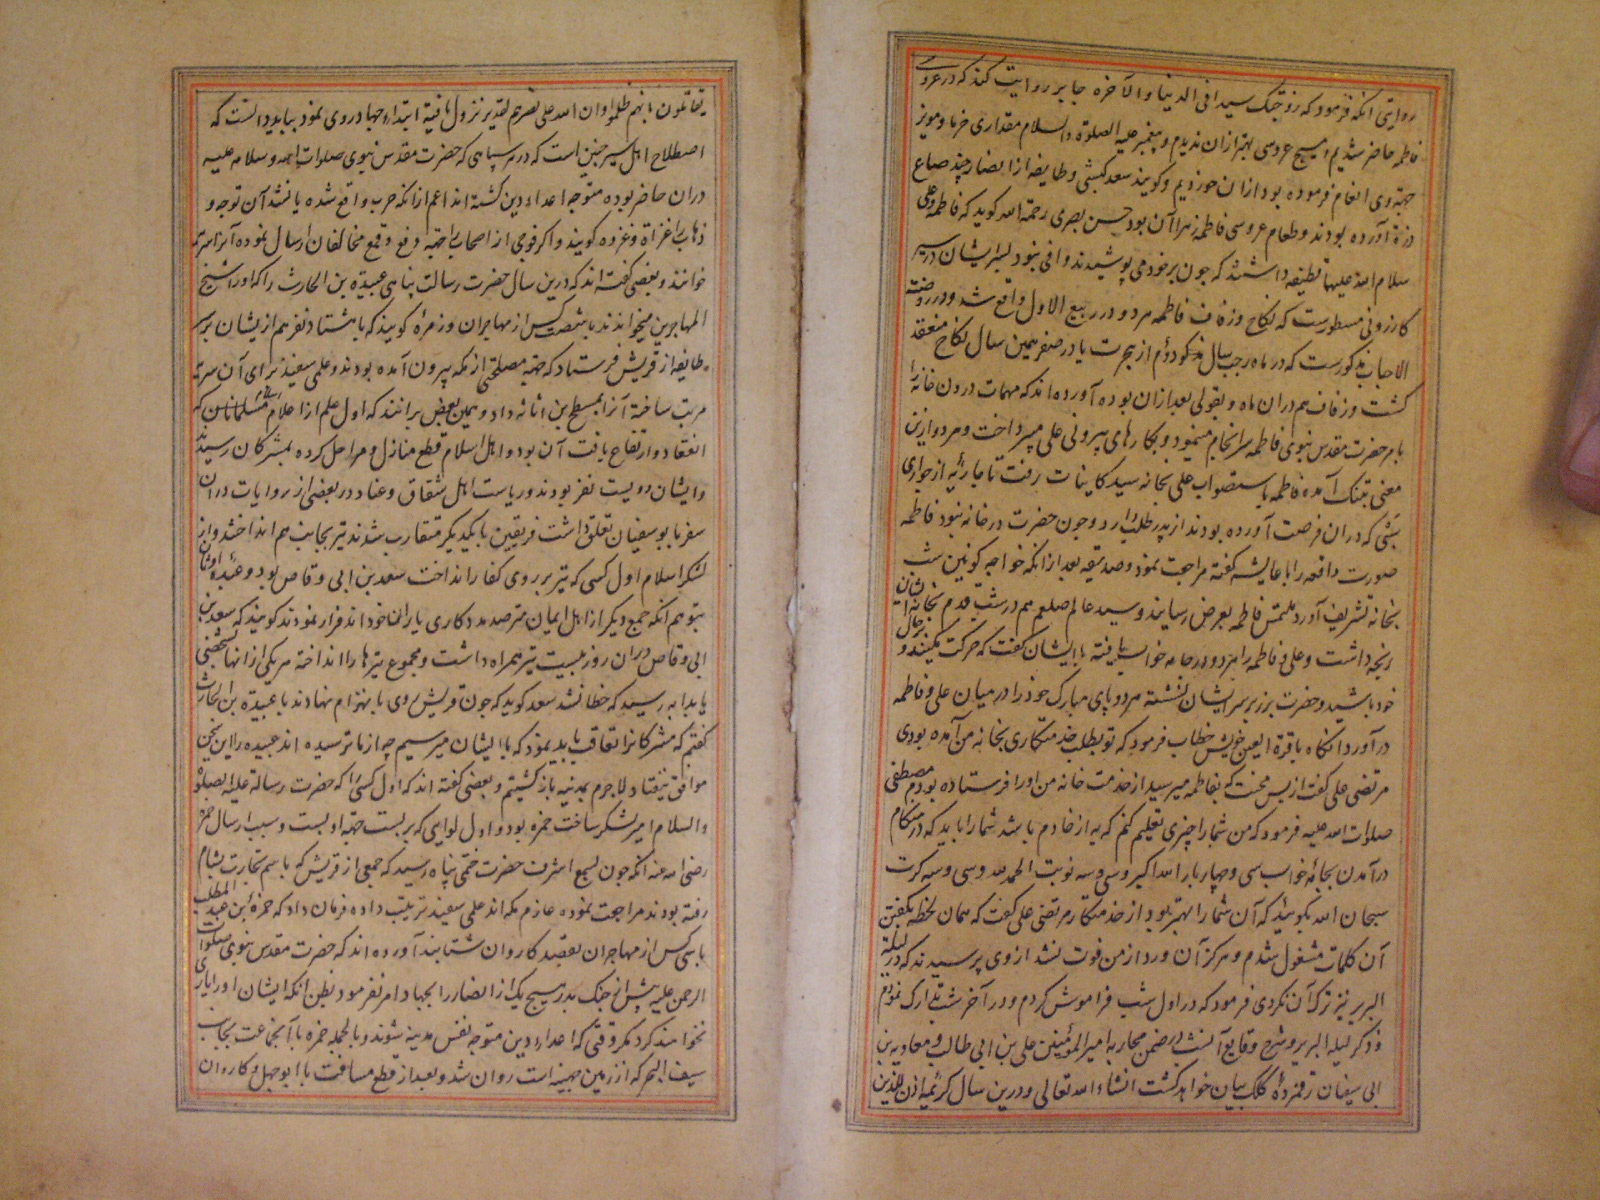 روایتی آنکه فرمود که زوجتک سیدا فی الدنیا و الآخره جابر روایت کند که در عروسی
فاطمه حاضر شدیم هیچ عروسی بهتر ازان ندیدیم و پیغمبر علیه الصلوة و السلام مقداری خرما و مویز
جهة وی انعام فرموده بود ازان خوردیم و کویند سعد کبشی و طایفه از انصار چند صاع
ذرة آورده بودند و طعام عروسی فاطمه زهرا آن بود حسن بصری رحمة الله کوید که فاطمه و علی
سلام الله علیهما قطیفه داشتند که چون بر خود می پوشیدند وافی نبود بستر ایشان در سیر
کازرونی مسطورست که نکاح و زفاف فاطمه مردو در ربیع الاول واقع شد و در روضة
الاحباب مذکورست که در ماه رجب سال مذکور دوم از هجرت یا در صفر همین سال نکاح منعقد
کشت و زفاف هم دران ماه و بقولی بعد ازان بوده آورده اند که مهمات درون خانه را
بامر حضرت مقدس نبوی فاطمه سرانجام مینمود و بکارهای بیرونی علی میپرداخت و هر دو ازین
معنی بتنک آمده فاطمه باستصواب علی بخانه سید کاینات رفت تا جاریه از جواری
سبی که دران فرصت آورده بودند از پدر طلب دارد و چون حضرت در خانه نبود فاطمه
صورت واقعه را با عایشه کفته مراجعت نمود و صدیقه بعد از آنکه خواجه کونین شب
بخانه تشریف آورد ملتمس فاطمه بعرض رسانید و سید عالم صلعم هم در شب قدم بخانه ایشان
رنجه داشت و علی و فاطمه را هر دو در جامه خواب یافته با ایشان کفت که حرکت مکنید و بر حال
خود باشید و حضرت بر زبر سر ایشان نشسته هر دو پای مبارک خود را در میان علی و فاطمه
در آورد آنکاه با قرة العین خویش خطاب فرمود که تو بطلب خدمتکاری بخانه من آمده بودی
مرتضی علی کفت از بس محنت که بفاطمه میرسید از خدمت خانه من او را فرستاده بودم مصطفی
صلوات الله علیه فرمود که من شما را چیزی تعلیم کنم که به از خادم باشد شما را باید که در هنکام
در آمدن بجامه خواب سی و چهار بار الله اکبر و سی و سه نوبت الحمد لله و سی و سه کرت
سبحان الله بکویید که آن شما را بهتر بود از خدمتکار مرتضی علی کفت که همان لحظه بکفتن
آن کلمات مشغول شدم و هرکز آن ورد از من فوت نشد از وی پرسیدند که در لیلة
الهریر نیز ترک آن نکردی فرمود که در اول شب فراموش کردم و در آخر شب تدارک نمودم
و ذکر لیلة الهریر و شرح وقایع آن شب در ضمن محاربه امیر المؤمنین علی بن ابی طالب و معاویه بن
ابی سفیان رقمزده کلک بیان خواهد کشت انشاء الله تعالی و درین سال کریمه اذن للذین
یقاتلون بانهم ظلموا و ان الله علی نصرهم لقدیر نزول یافته ابتداء جهاد روی نمود بباید دانست که
اصطلاح اهل سیر چنین است که در هر سپاهی که حضرت مقدس نبوی صلوات الله و سلامه علیه
دران حاضر بوده متوجه اعداء دین کشته اند اعم از آنکه حرب واقع شده یا نشد آن توجه و
ذهاب را غزاة و غزوه کویند و اکر فوجی از اصحاب جهة دفع و قمع مخالفان ارسال نموده آنرا سریه
خوانند و بعضی کفته اند که درین سال حضرت رسالت پناهی عبیدة بن الحارث را که او را شیخ
المهاجرین میخواندند با شصت کس از مهاجران و زمره کویند که با هشتاد نفر هم ازیشان بر سر
طایفه از قریش فرستاد که جهة مصلحتی از مکه بیرون آمده بودند و علمی سفید برای آن سریه
مرتب ساخته آنرا بمسطح بن اثاثه داد و همین بعض برانند که اول علم از اعلام مسلمانان که
انعقاد و ارتفاع یافت آن بود و اهل اسلام قطع منازل و مراحل کرده بمشرکان رسیدند
و ایشان دویست نفر بودند و ریاست اهل شقاق و عناد در بعضی از روایات دران
سفر بابو سفیان تعلق داشت فریقین با یکدیکر متقارب شدند تیر بجانب هم انداختند و از
لشکر اسلام اول کسی که تیر بر روی کفار انداخت سعد بن ابی وقاص بود و عبده اوثان
بتوهم آنکه جمع دیکر از اهل ایمان مترصد مددکاری یاران خود اند فرار نمودند کویند که سعد بن
ابی وقاص دران روز بیست تیر همراه داشت و مجموع تیرها را انداخته هر یکی از آنها بشخصی
یا بدابه رسید که خطا نشد سعد کوید که چون قریش روی بانهزام نهادند با عبیدة بن الحارث
کفتم که مشرکانرا تعاقب باید نمود که با ایشان میرسیم چه از ما ترسیده اند عبیده را این سخن
موافق نیفتاد لا جرم بمدینه باز کشتیم و بعضی کفته اند که اول کسی را که حضرت رسالة علیه الصلوة
و السلام امیر لشکر ساخت حمزه بود و اول لوایی که بر بست جهة او بست و سبب ارسال حمزه
رضی الله عنه آنکه چون بسمع اشرف حضرت ختمی پناه رسید که جمعی از قریش که باسم تجارت بشام
رفته بودند مراجعت نموده عازم مکه اند علمی سفید ترتیب داده فرمان داد که حمزة ابن عبد المطلب
با سی کس از مهاجران بقصد کاروان شتابند آورده اند که حضرت مقدس نبوی صلوات
الرحمن علیه پیش از جنک بدر هیچ یک از انصار را بجهاد امر نفرمود بظن آنکه ایشان او را یاری
نخواهند کرد مکر وقتی که اعداء دین متوجه نفس مدینه شوند و بالجمله حمزه با آنجماعت بجانب
سیف البحر که از زمین جهینه است روان شد و بعد از قطع مسافت با ابو جهل و کاروان